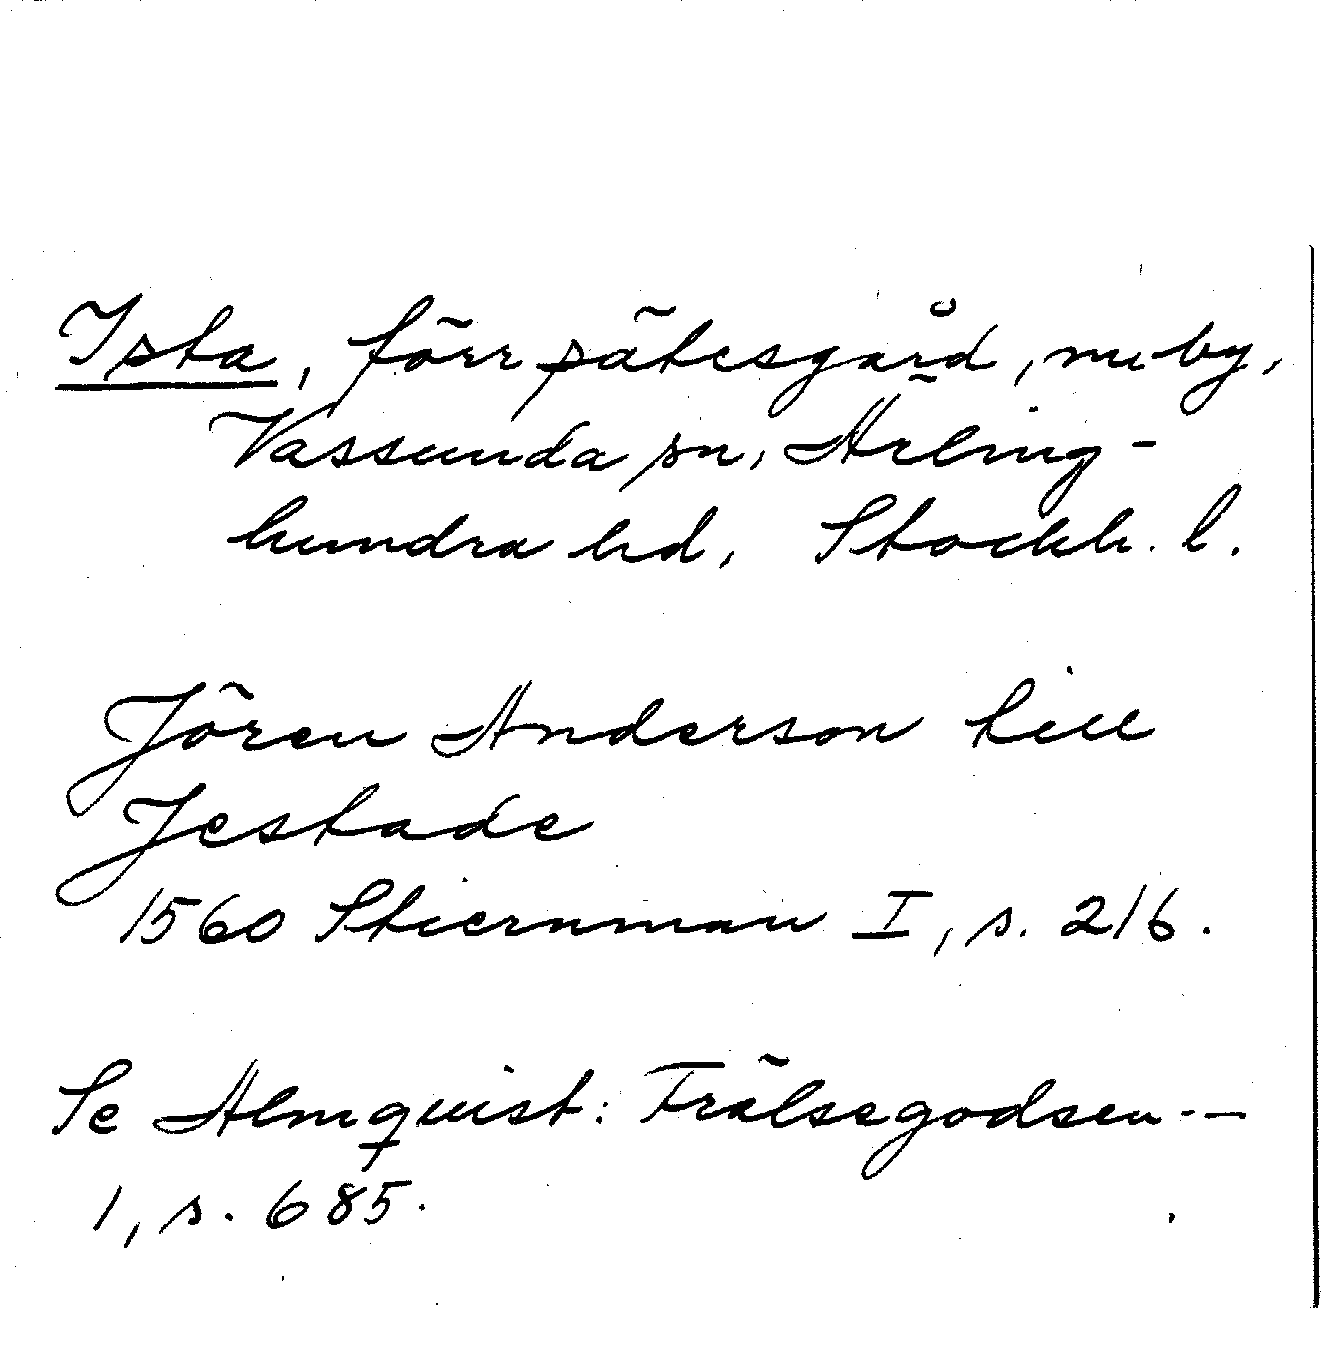 Ista, förr sätesgård, nu by,
Vassunda sn, Ärling-
hundra hd, Stockh. l.
Jören Anderson till
Jestade
1560 Stiernman I, s. 216.
Se Almquist: Frälsegodsen --
1, s. 685.